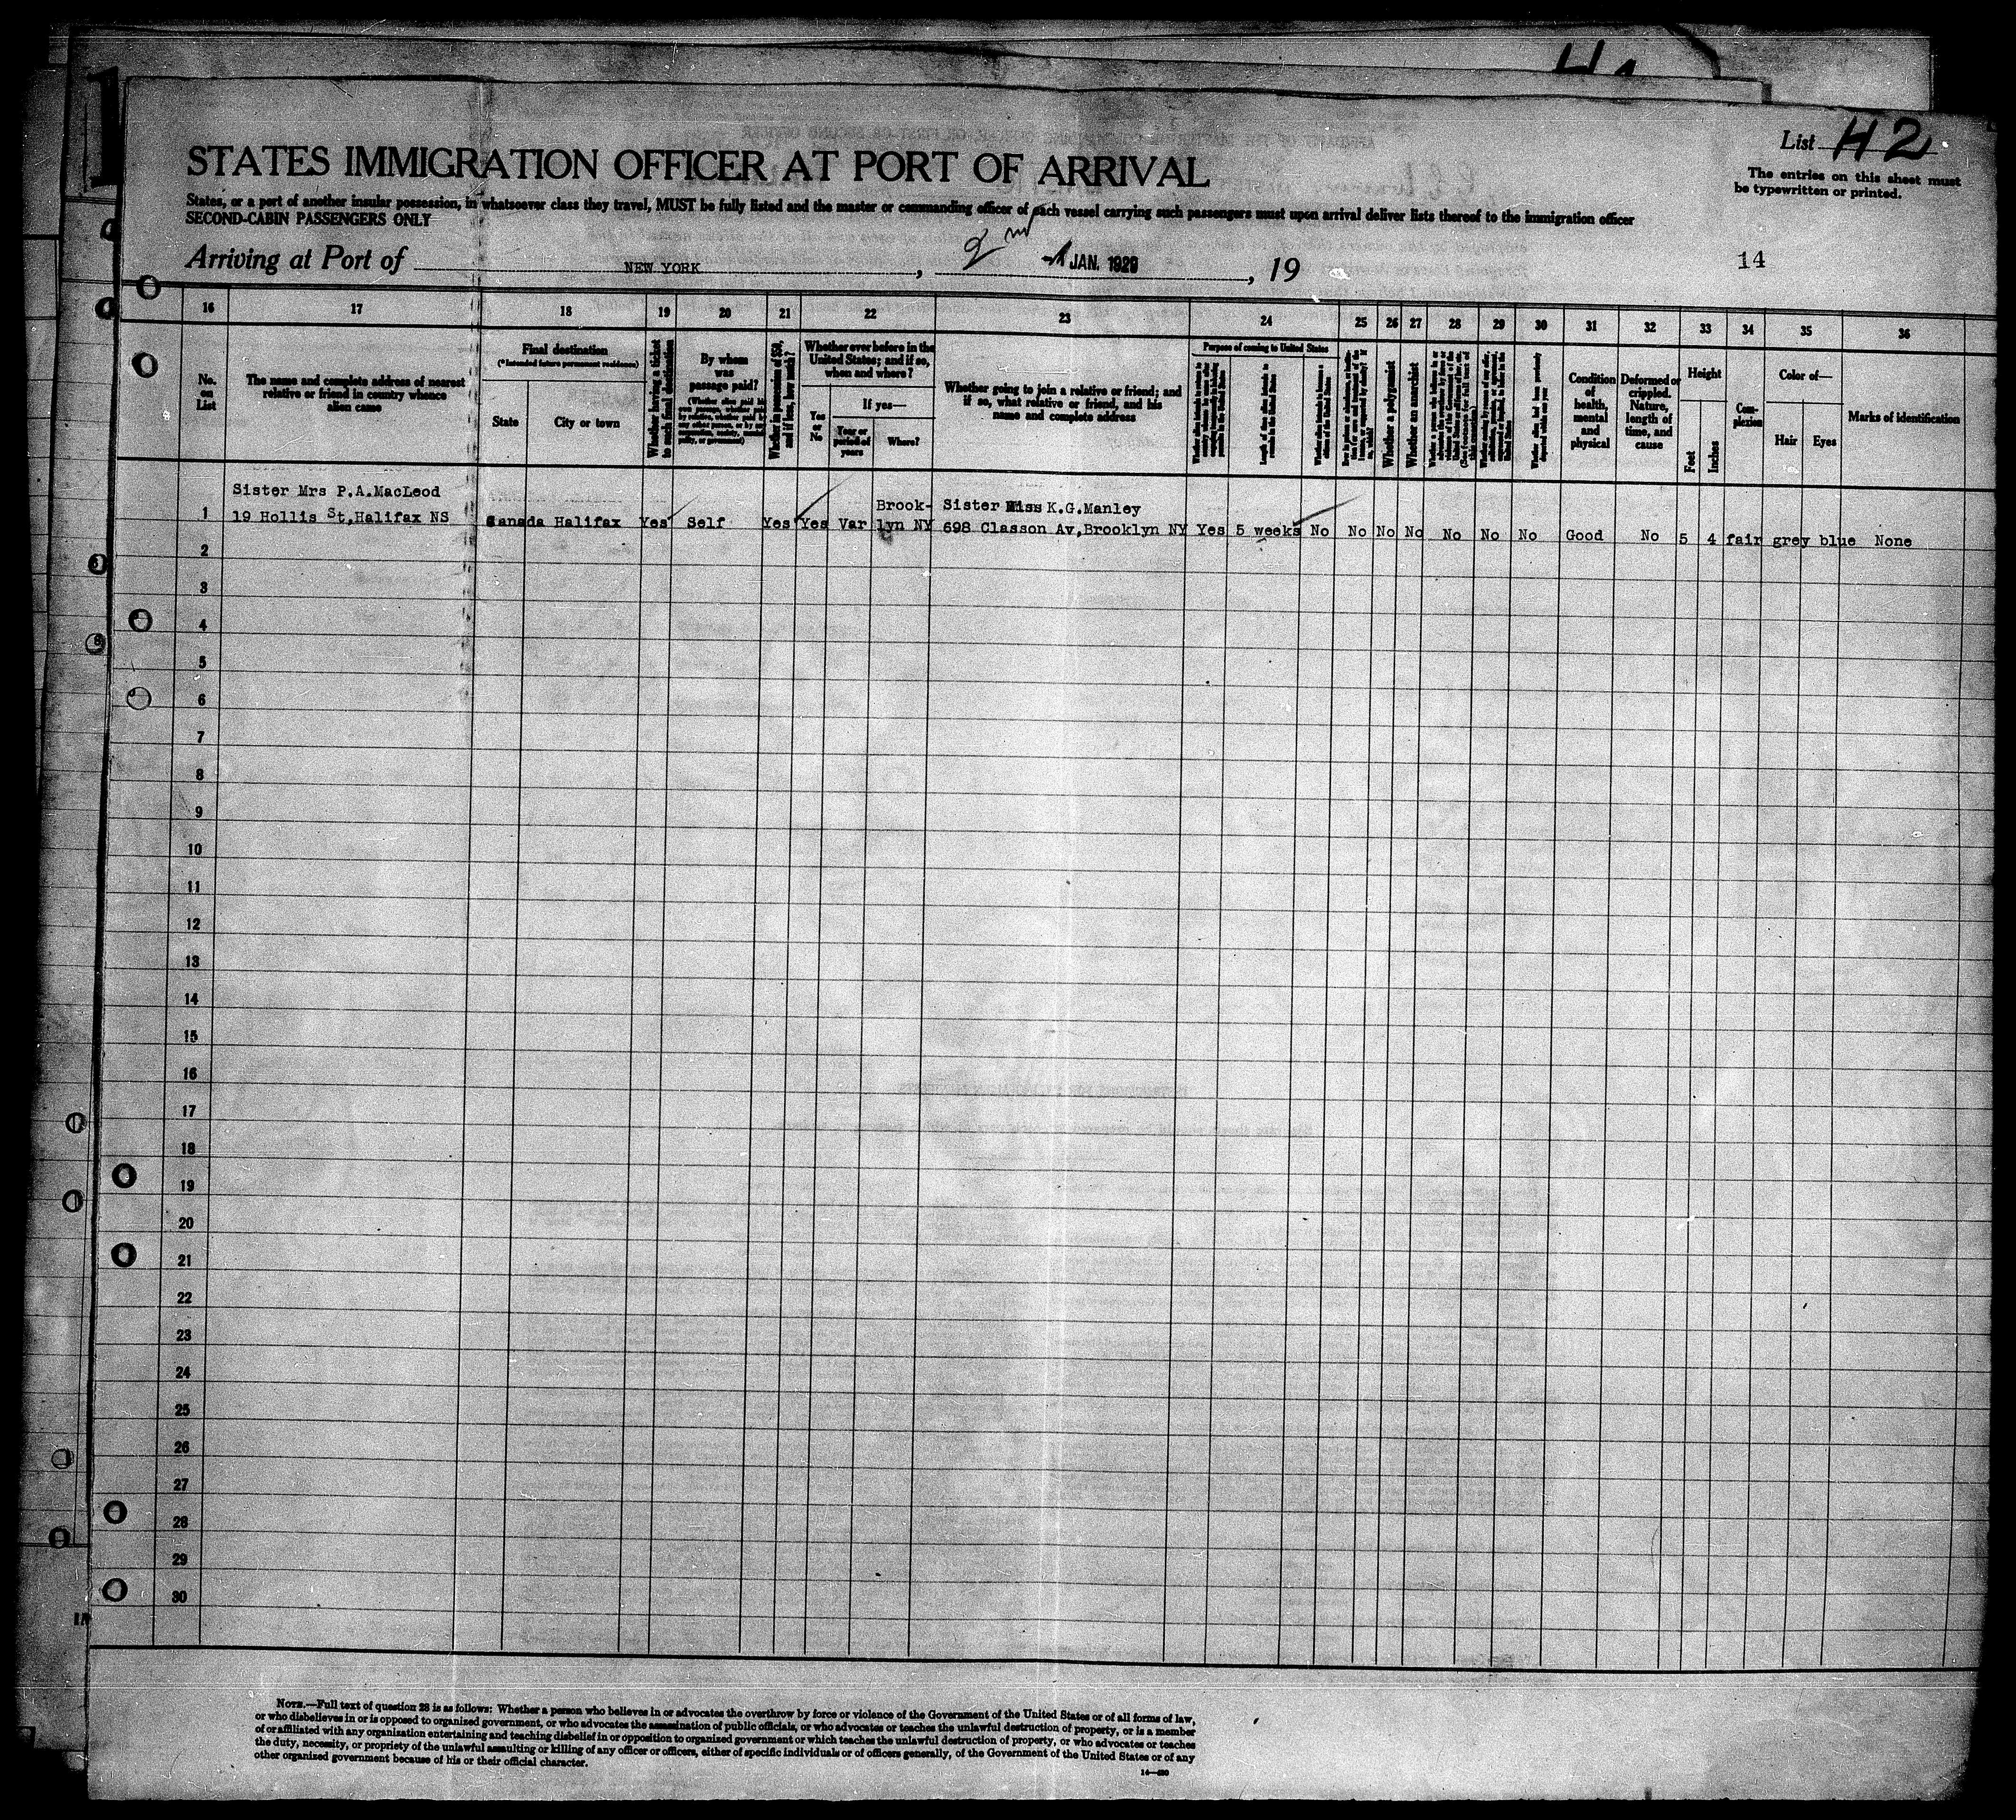 List 42
The entries on this sheet must
be typewritten or printed.
STATES IMMIGRATION OFFICER AT PORT OF ARRIVAL
States, or a port of another insular possession, in whatsoever class they travel, MUST be fully listed and the master or commanding officer of each vessel carrying such passengers must upon arrival deliver lists thereof to the immigration officer
SECOND-CABIN PASSENGERS ONLY
Arriving at Port of NEW YORK, 2nd JAN. 1929, 19
14
16 17 18 19 20 21 22 23 24 25 26 27 28 29 30 31 32 33 34 35 36
No.
on
List
The name and complete address of nearest
relative or friend in country whence
alien came
Final destination
(*Intended future permanent residence)
State
City or town
Whether having a ticket
to such final destination
By whom
was
passage paid?
Whether in possession of $50,
and if less, how much?
Whether ever before in the
United States; and if so,
when and where?
Yes
or
No
If yes—
Year or
period of
years
Where?
Whether going to join a relative or friend; and
if so, what relative or friend, and his
name and complete address
Purpose of coming to United States
Length of time alien intends to
remain in the United States
Whether a polygamist
Whether an anarchist
Condition
of
health,
mental
and
physical
Deformed or
crippled.
Nature,
length of
time, and
cause
Height
Feet
Inches
Com-
plexion
Color of—
Hair
Eyes
Marks of identification
Sister Mrs P.A.MacLeod
19 Hollis St,Halifax NS
1
Canada Halifax Yes Self Yes Yes Var
Brook-
lyn NY
Sister Miss K.G.Manley
698 Classon Av,Brooklyn NY
Yes 5 weeks No No No No No No No Good No 5 4 fair grey blue None
2
3
4
5
6
7
8
9
10
11
12
13
14
15
16
17
18
19
20
21
22
23
24
25
26
27
28
29
30
NOTE.—Full text of question 28 is as follows: Whether a person who believes in or advocates the overthrow by force or violence of the Government of the United States or of all forms of law,
or who disbelieves in or is opposed to organized government, or who advocates the assassination of public officials, or who advocates or teaches the unlawful destruction of property, or is a member
of or affiliated with any organization entertaining and teaching disbelief in or opposition to organized government or which teaches the unlawful destruction of property, or who advocates or teaches
the duty, necessity, or propriety of the unlawful assaulting or killing of any officer or officers, either of specific individuals or of officers generally, of the Government of the United States or of any
other organized government because of his or their official character.